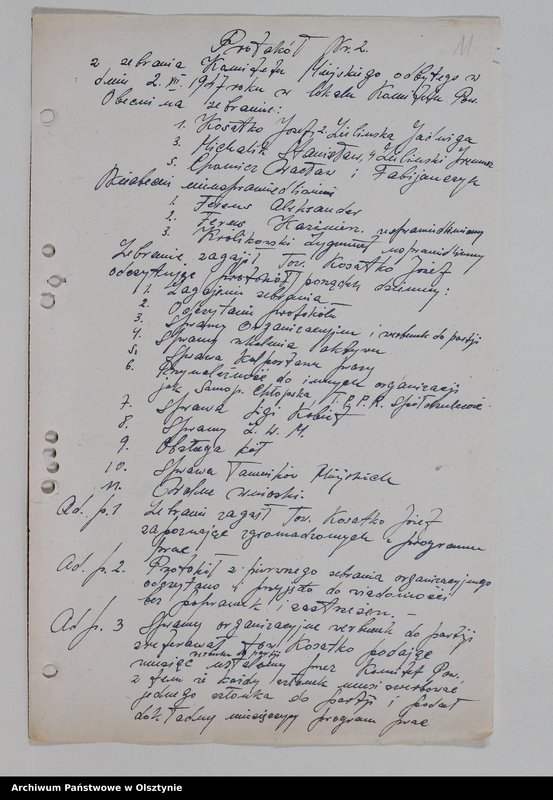 11.
Protokół Nr. 2.
z zebrania Komitetu Miejskiego odbytego w
dniu 2. VII 1947 roku w lokalu Komitetu Pow.
Obecni na zebranie:
1. Kosatko Józef, 2. Zielinska Jadwiga
3. Michalik Stanisław, 4 Zielinski
5. Wacław i Fabijanczyk
Nieobecni nieusprawiedliwieni
1. Ferens Aleksander
2. Ferens Kazimierz. usprawiedliwiony
3. Królikowski Zygmunt usprawiedliwiony
Zebranie zagaił Tow. Kosatko Józef
odczytując protokół porządek dzienny:
1. Zagajenie zebrania
2. Odczytanie protokółu
3. Sprawy organizacyjne i werbunek do partji
4. Sprawy szkolenia aktywu
5. Sprawa kolportażu prasy
6. Przynależność do innych organizacji
jak Samop. Chłopska, T.P.P.R. Spółdzielnie
7. Sprawa Ligi Kobiet
8. Sprawy Z. W. M.
9. Obsługa kół
10. Sprawa Miejskich
11. Wolne wnioski.
Ad. p. 1 Zebranie zagaił Tow. Kosatko Józef
zapoznając zgromadzonych z programem
prac
Ad. p. 2. Protokół z pierwszego zebrania organizacyjnego
odczytano i przyjęto do wiadomości
bez poprawek i zastrzeżeń. —
Ad p. 3 Sprawy organizacyjne werbunek do partji
zreferował tow. Kosatko podając
werbunku do partji
miesiąc ustalony przez Komitet Pow.
z tem że każdy członek musi zwerbować
jednego członka do partji i podał
dokładny miesięczny program prac
Archiwum Państwowe w Olsztynie